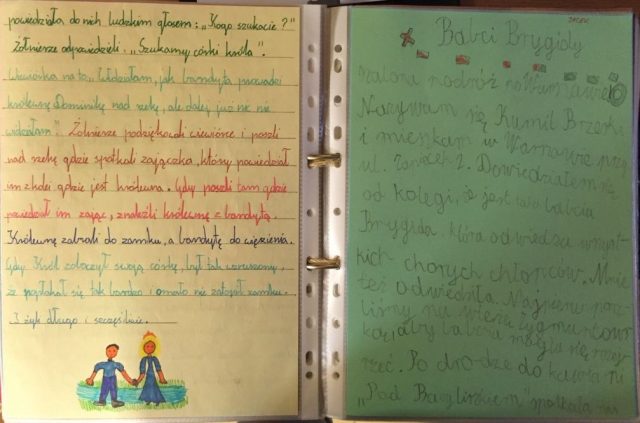 powiedziała do nich ludzkim głosem: „Kogo szukacie?"
Żołnierze odpowiedzieli: „Szukamy córki króla".
Wiewiórka na to „Widziałam, jak bandyta prowadzi
królewnę Dominikę nad rzekę, ale dalej już nic nie
widziałam". Żołnierze podziękowali wiewiórce i poszli
nad rzekę gdzie spotkali zajączka, który powiedział
im gdzie jest królewna. Gdy poszli tam gdzie
powiedział im zając, znaleźli królewnę z bandytą.
Królewnę zabrali do zamku, a bandytę do więzienia.
Gdy Król zobaczył swoją córkę, był tak wzruszony,
że popłakał się tak bardzo i omało nie zatopił zamku.
I żyli długo i szczęśliwie.
JACEK
Babci Brygidy
szalona podróż po Warszawie
Nazywam się Kamil Brzeski
i mieszkam w Warszawie przy
ul. 2. Dowiedziałem się
od kolegi, że jest taka babcia
Brygida, która odwiedza wszyst-
kich chorych chłopców. Mnie
też odwiedziła. Najpierw posz-
liśmy na
żeby babcia mogła się rozej-
rzeć. Po drodze do kawiarni
„Pod Bazyliszkiem" spotkała